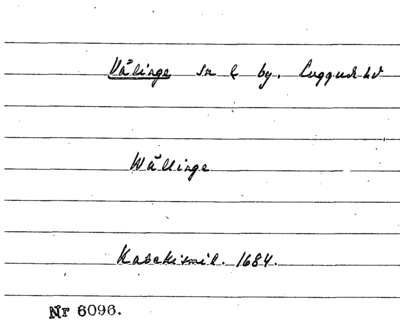 Välinge sn o by. Luggude hd
Wällinge
Katekismil. 1684.
Nr 6096.